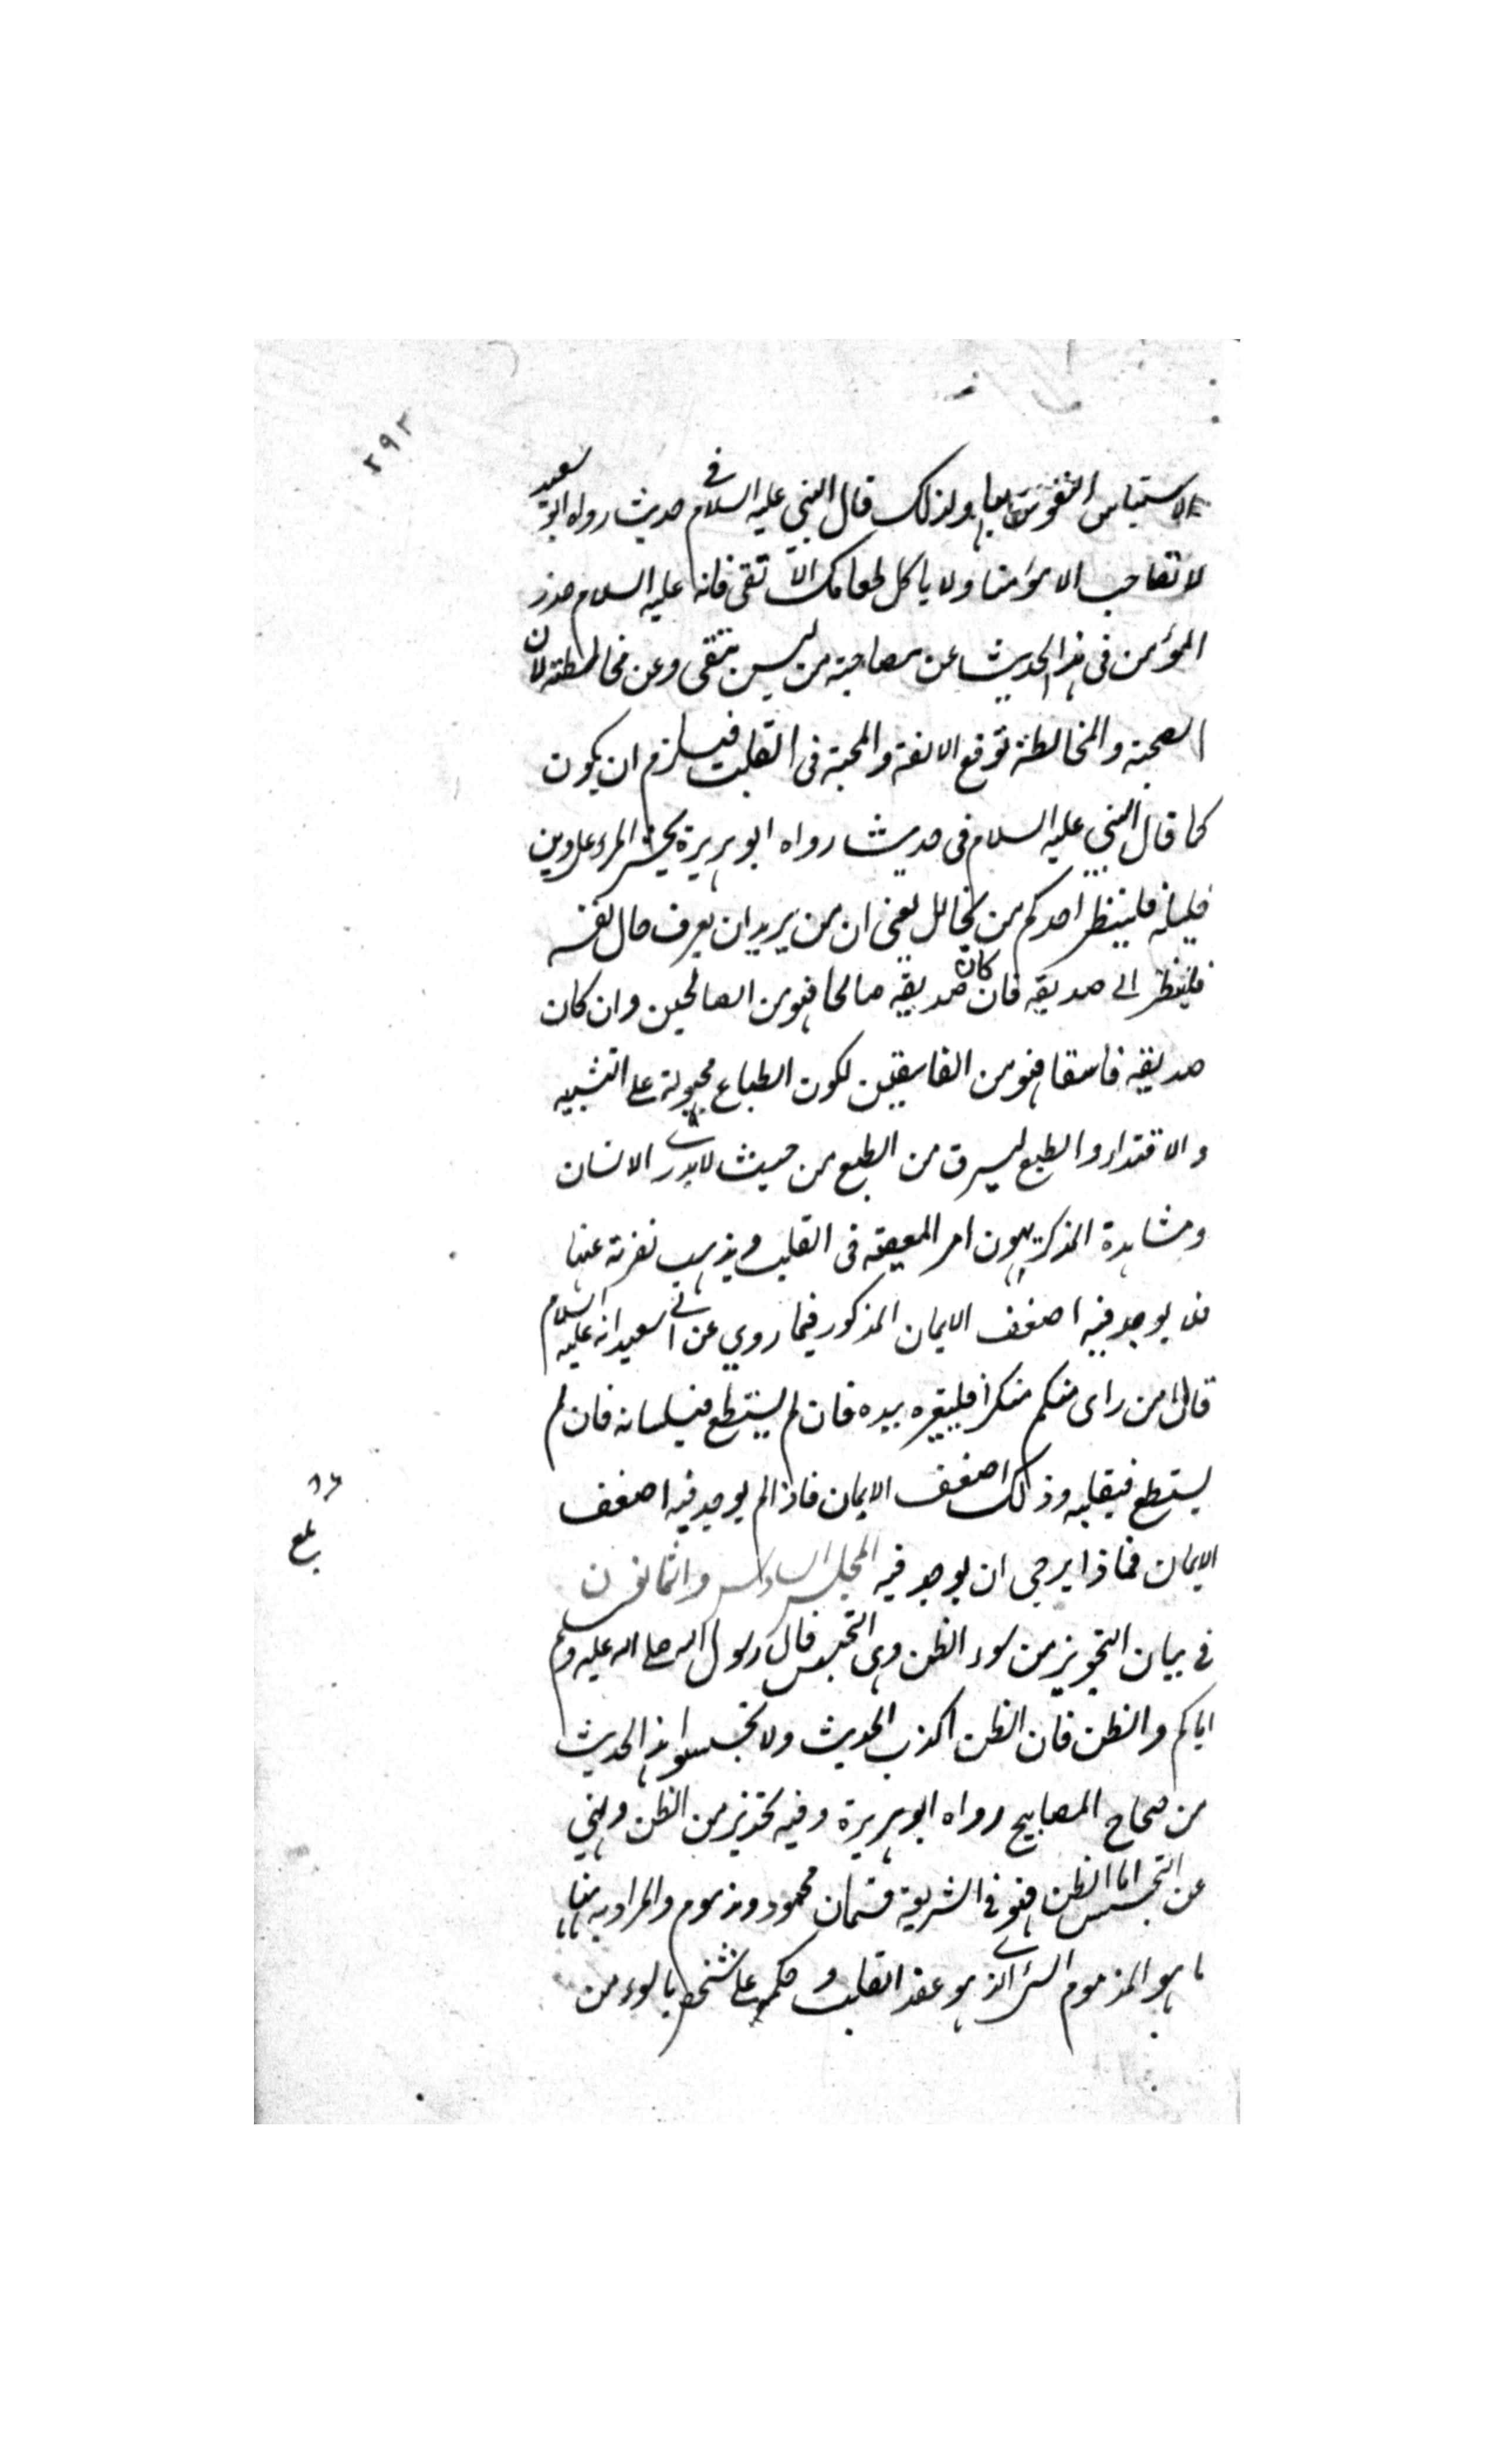 ٢٩٢
لاستيناس النفوس بها ولذلك قال النبي عليه السلام في حديث رواه ابو سعيد
لا تصاحب الا مؤمنا ولا ياكل طعامك الا تقى فانه عليه السلام حذر
المؤمن فى هذا الحديث عن مصاحبة من ليس بتقى وعن مخالطته لان
الصحبة والمخالطة توقع الالفة والمحبة فى القلب فيلزم ان يكون
كما قال النبي عليه السلام فى حديث رواه ابو هريرة يحشر المرء على دين
خليله فلينظر احدكم من يخالل يعنى ان من يريد ان يعرف حال نفسه
فلينظر الى صديقه فان كان صديقه صالحا فهو من الصالحين وان كان
صديقه فاسقا فهو من الفاسقين لكون الطباع مجبولة على التشبيه
والاقتداء والطبع يسرق من الطبع من حيث لا يدرى الانسان
ومشاهدة المنكر يهون امر المعصية فى القلب ويذهب نفرته عنها
فلا يوجد فيه اضعف الايمان المذكور فيما روي عن ابي سعيد انه عليه السلام
قال من راى منكم منكرا فليغيره بيده فان لم يستطع فبلسانه فان لم
يستطع فبقلبه وذلك اضعف الايمان فاذا لم يوجد فيه اضعف
الايمان فماذا يرجى ان يوجد فيه المجلس السادس والثمانون
في بيان التحويز من سوء الظن وهى التجسس قال رسول الله صلى الله عليه وسلم
اياكم والظن فان الظن اكذب الحديث ولا تجسسوا هذا الحديث
من صحاح المصابيح رواه ابو هريرة وفيه تحذير من الظن ونهي
عن التجسس اما الظن فهو فى الشريعة قسمان محمود ومذموم والمراد به ههنا
ما هو المذموم الذى هو عقد القلب وحكمه على شخص بالسوء من
بلغ